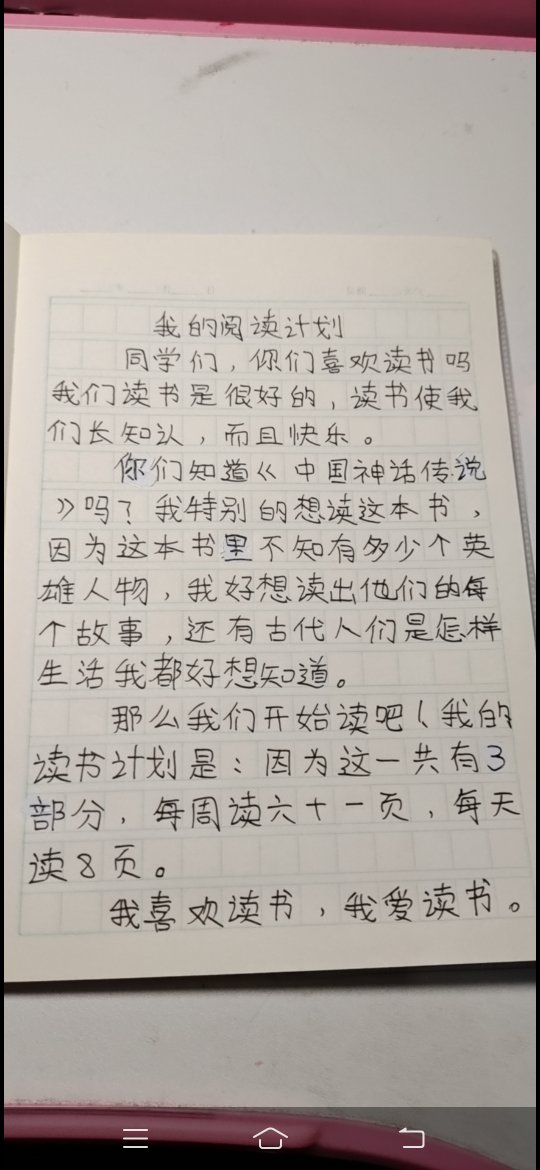 我的阅读计划
同学们，你们喜欢读书吗
我们读书是很好的，读书使我
们长知认，而且快乐。
你们知道《中国神话传说
》吗？我特别的想读这本书，
因为这本书里不知有多少个英
雄人物，我好想读出他们的每
个故事，还有古代人们是怎样
生活我都好想知道。
那么我们开始读吧(我的
读书计划是：因为这一共有3
部分，每周读六十一页，每天
读8页。
我喜欢读书，我爱读书。